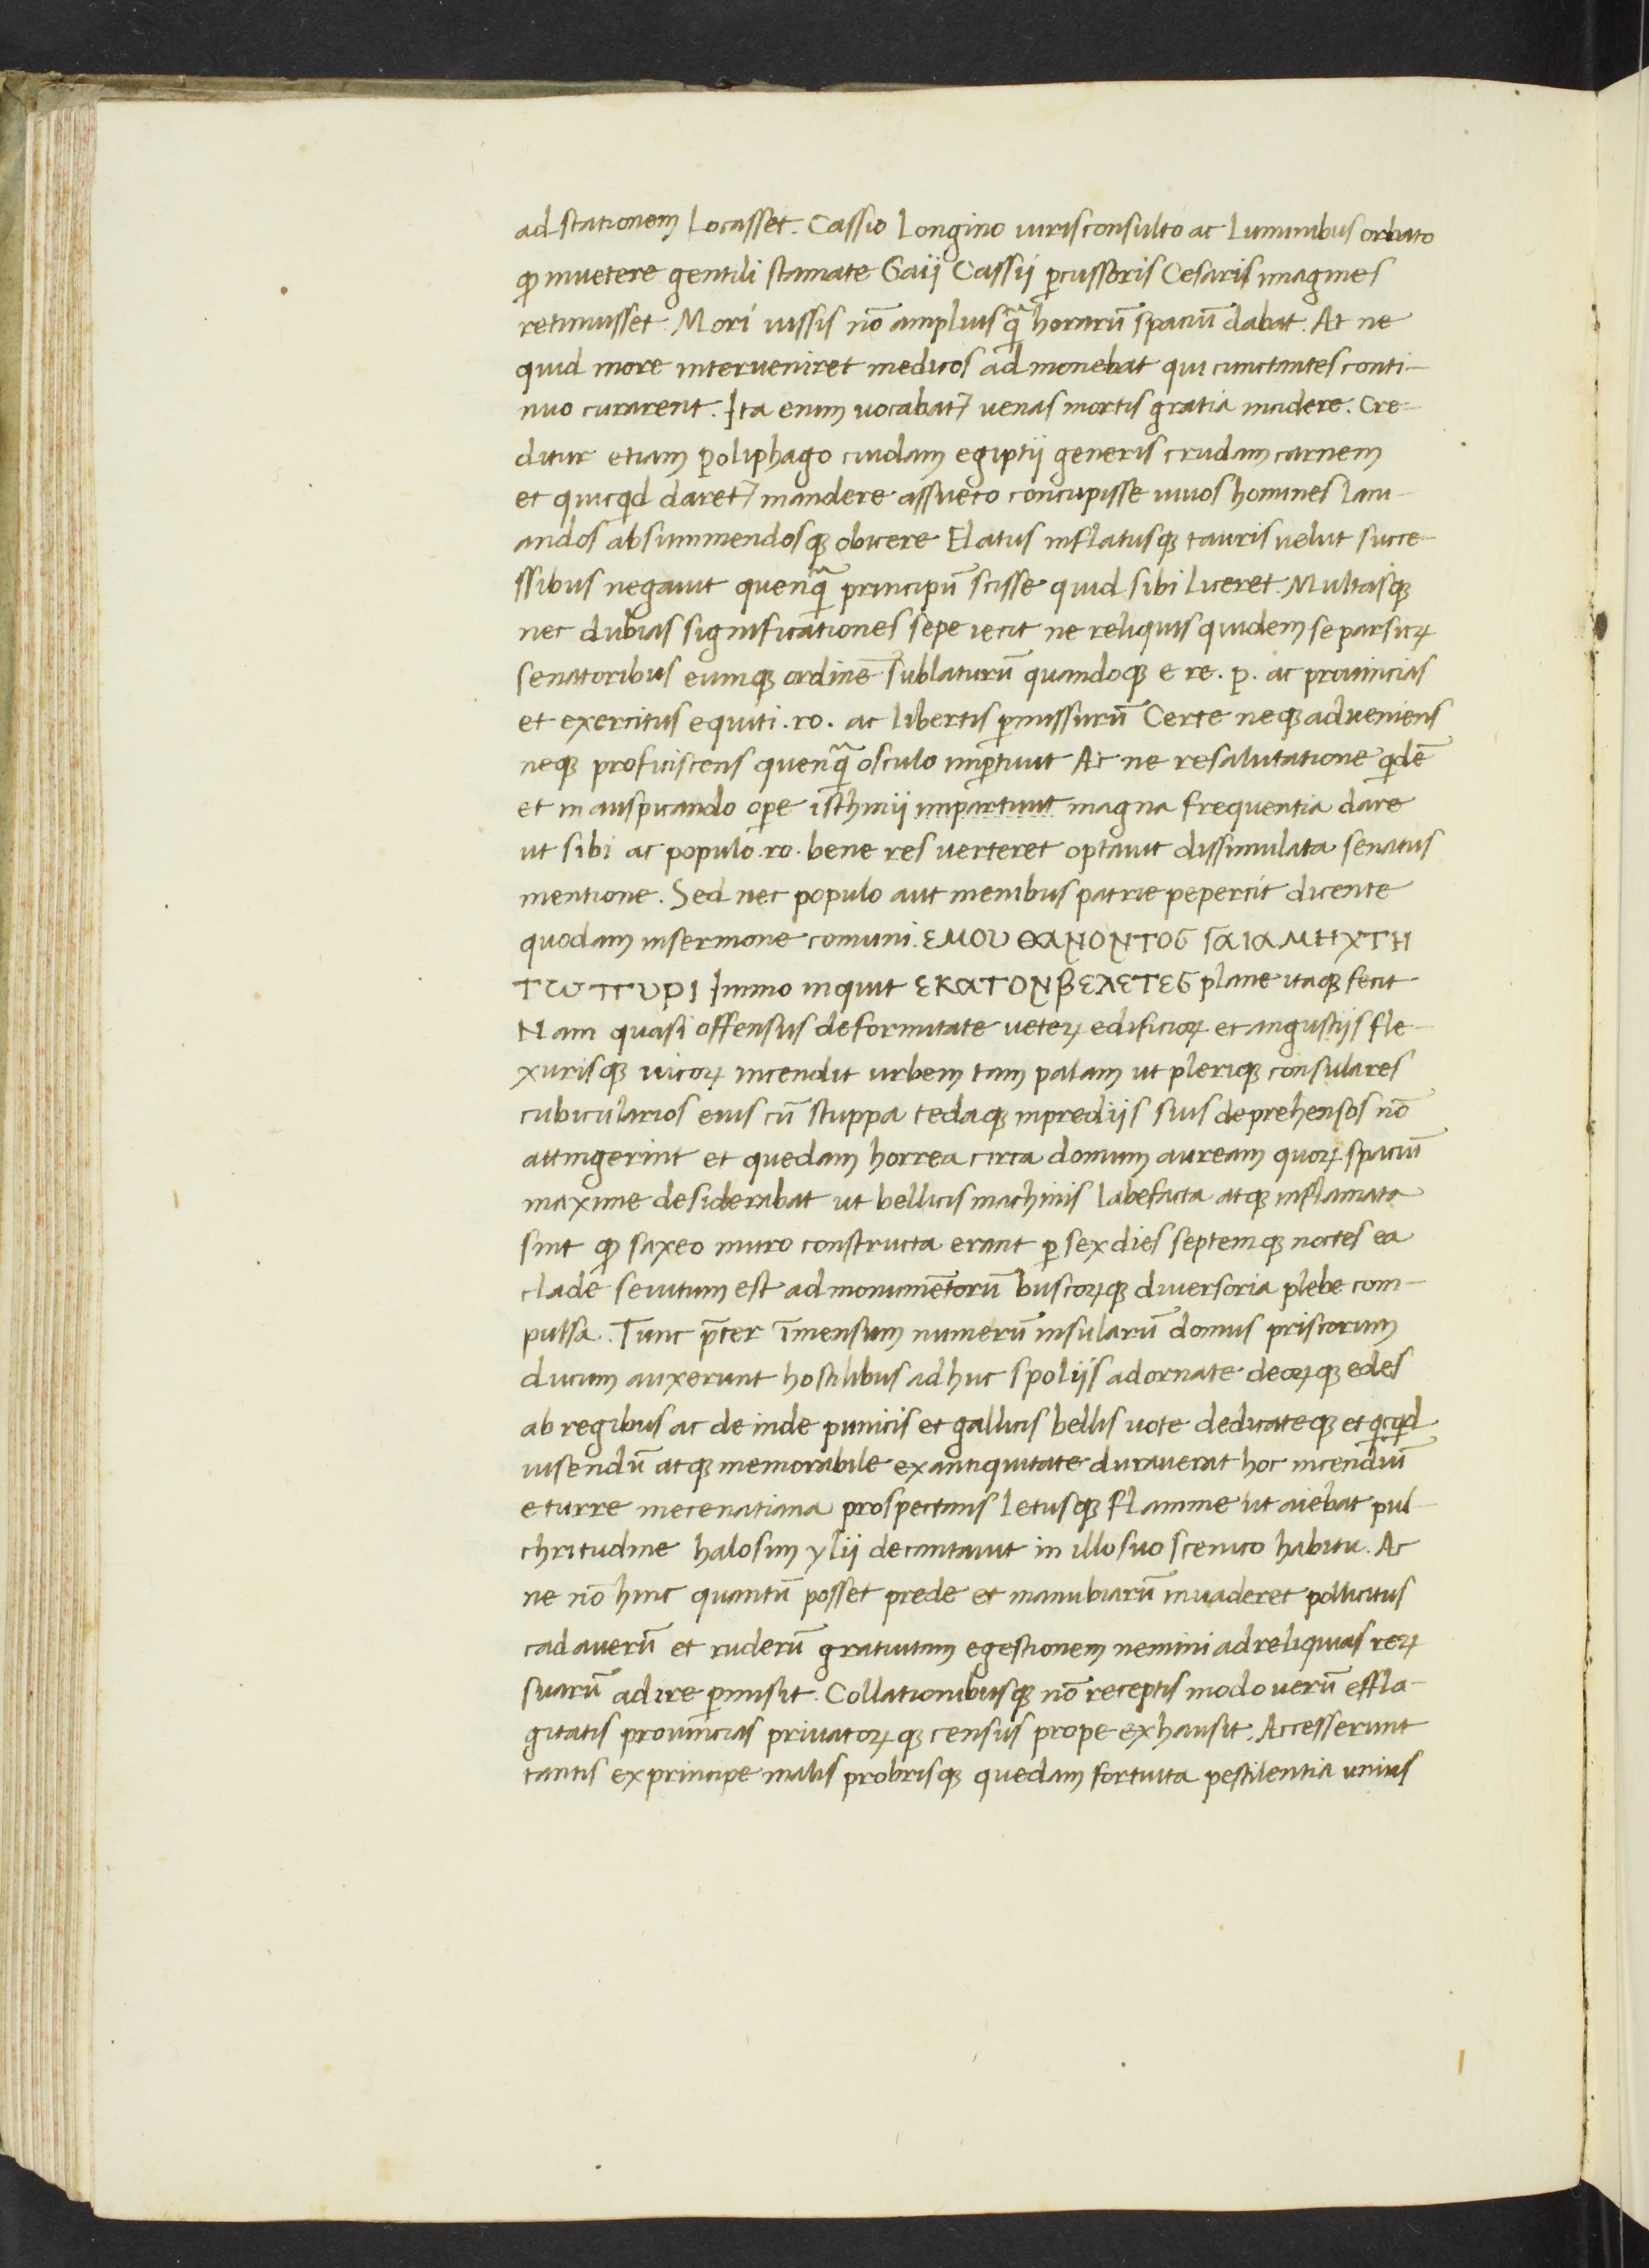 ad stationem Locasset. Cassio Longino iurisconsulto ac Luminibus orbato
ꝙ inuetere gentili stamate Gaii Cassii p̄cussoris Cesaris imagines
retinuisset. Mori iussis nō amplius q̄ horarū spaciū dabat. Ac ne
quid more interueniret medicos ad monebat qui cunctantes conti-
nuo curarent. Ita enim uocabat᷑ uenas mortis gratia incidere. Cre-
ditur etiam poliphago cuidam egiptii generis crudam carnem
et quicq̇d daret᷑ mandere assueto concupisse uiuos homines lani-
andos absummendosq; obicere Elatus inflatusq; tauris uelut succe-
ssibus negauit quenq̄ principū scisse quid sibi liceret. Multasq;
nec dubias significationes sepe iecit ne reliquis quidem se parsuꝝ
senatoribus eumq; ordinē sublaturū quandoq; e re. p. ac prouincias
et exercitus equiti. ro. ac libertis ꝑmissurū Certe neq; adueniens
neq; proficiscens quenq̄ osculo imꝑtiuit Ac ne resalutatione q̇dē
et in auspicando oꝑe isthmii impartiuit magna frequentia dare
ut sibi ac populo. ro. bene res uerteret optauit dissimulata senatus
mentione. Sed nec populo aut menibus patrie pepercit dicente
quodam insermone comuni. ΕΜΟΥ ΘΑΝΟΝΤΟϹ ΓΑΙΑ ΜΗΧΤΗ
ΤΩ ΠΥΡΙ Immo inquit ΕΚΑΤΟΝΒΕΛΕΤΕϹ plane itaq; fecit
Nam quasi offensus deformitate ueteꝝ edificioꝝ et angustiis fle-
xurisq; uicoꝝ incendit urbem tam palam ut pleriq; consulares
cubicularios eius cū stuppa tedaq; inprediis suis deprehensos nō
attingerint et quedam horrea circa domum auream quoꝝ spaciū
maxime desiderabat ut bellicis machinis labefacta atq; inflamata
sint ꝙ saxeo muro constructa erant ꝑ sex dies septemq; noctes ea
clade seuitum est ad monumētorū buscoꝝq; diuersoria plebe com-
pulsa. Tunc p̄ter īmensum numerū insularū domus priscorum
ducum auxerunt hostilibus adhuc spoliis adornate deoꝝq; edes
ab regibus ac deinde punicis et gallicis bellis uote dedicateq; et q̇cq̇d
uisendū atq; memorabile ex antiquitate durauerat hoc incendiū
e turre mecenatiana prospectans letusq; flamme ut aiebat pul-
chritudine halosim ylii decantauit in illo suo scenico habitu. Ac
ne nō hinc quantū posset prede et manubiarū inuaderet pollicitus
cadauerū et ruderū gratuitam egestionem nemini ad reliquias reꝝ
suarū adire ꝑmisit. Collationibusq; nō receptis modo uerū effla-
gitatis prouincias priuatoꝝq; census prope exhausit. Accesserunt
tantis ex principe malis probrisq; quedam fortuita pestilentia unius